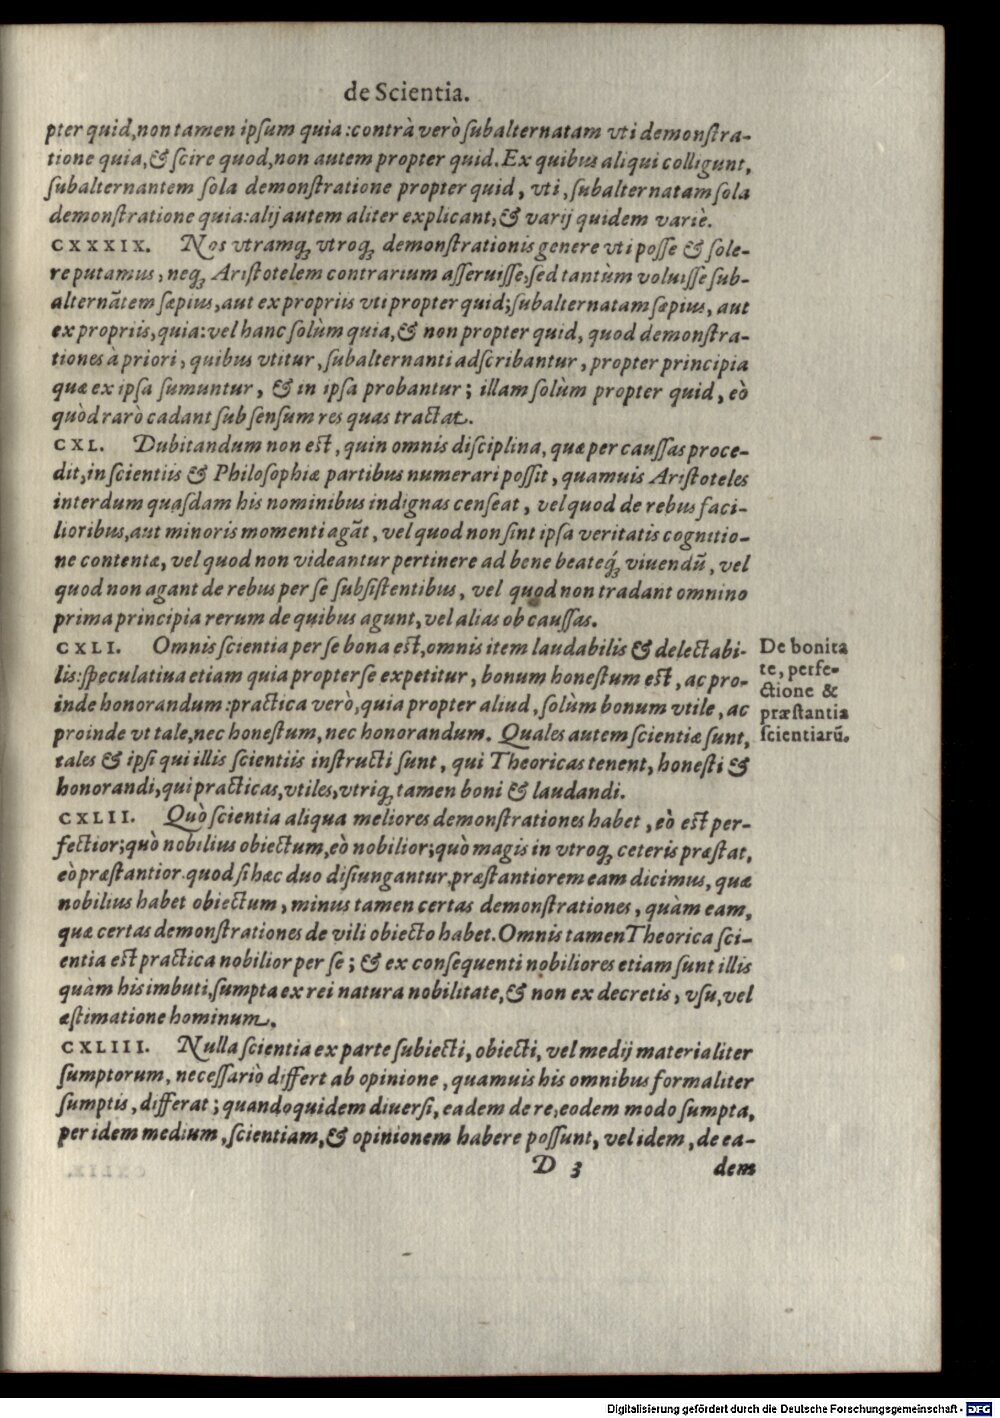 de Scientia.
pter quid, non tamen ipſum quia: contrà verò ſubalternatam vti demonſtra-
tione quia, & ſcire quod, non autem propter quid. Ex quibus aliqui colligunt,
ſubalternantem ſola demonſtratione propter quid, vti, ſubalternatam ſola
demonſtratione quia: alij autem aliter explicant, & varij quidem variè.
CXXXIX. Nos vtramq́ꝫ vtroq́ꝫ demonſtrationis genere vti poſſe & ſole-
re putamus, neq́ꝫ Ariſtotelem contrarium aſſeruiſſe, ſed tantùm voluiſſe ſub-
alternātem ſæpius, aut ex propriis vti propter quid; ſubalternatam ſæpius, aut
ex propriis, quia: vel hanc ſolùm quia, & non propter quid, quod demonſtra-
tiones à priori, quibus vtitur, ſubalternanti adſcribantur, propter principia
quæ ex ipſa ſumuntur, & in ipſa probantur; illam ſolùm propter quid, eò
quòd rarò cadant ſub ſenſum res quas tractat.
CXL. Dubitandum non eſt, quin omnis diſciplina, quæ per cauſſas proce-
dit, in ſcientiis & Philoſophiæ partibus numerari poſſit, quamuis Ariſtoteles
interdum quaſdam his nominibus indignas cenſeat, vel quod de rebus faci-
lioribus, aut minoris momenti agāt, vel quod non ſint ipſa veritatis cognitio-
ne contentæ, vel quod non videantur pertinere ad bene beateq́ꝫ viuendū, vel
quod non agant de rebus per ſe ſubſiſtentibus, vel quod non tradant omnino
prima principia rerum de quibus agunt, vel alias ob cauſſas.
CXLI. Omnis ſcientia per ſe bona eſt, omnis item laudabilis & delectabi-
lis: ſpeculatiua etiam quia propter ſe expetitur, bonum honeſtum eſt, ac pro-
inde honorandum: practica verò, quia propter aliud, ſolùm bonum vtile, ac
proinde vt tale, nec honeſtum, nec honorandum. Quales autem ſcientiæ ſunt,
tales & ipſi qui illis ſcientiis inſtructi ſunt, qui Theoricas tenent, honeſti &
honorandi, qui practicas, vtiles, vtriq́ꝫ tamen boni & laudandi.
De bonita
te, perfe-
ctione &
præſtantia
ſcientiarū.
CXLII. Quò ſcientia aliqua meliores demonſtrationes habet, eò eſt per-
fectior; quò nobilius obiectum, eò nobilior; quò magis in vtroq́ꝫ ceteris præſtat,
eò præſtantior. quod ſi hæc duo diſiungantur, præſtantiorem eam dicimus, quæ
nobilius habet obiectum, minus tamen certas demonſtrationes, quàm eam,
quæ certas demonſtrationes de vili obiecto habet. Omnis tamen Theorica ſci-
entia eſt practica nobilior per ſe; & ex conſequenti nobiliores etiam ſunt illis
quàm his imbuti, ſumpta ex rei natura nobilitate, & non ex decretis, vſu, vel
æſtimatione hominum.
CXLIII. Nulla ſcientia ex parte ſubiecti, obiecti, vel medij materialiter
ſumptorum, neceſſariò differt ab opinione, quamuis his omnibus formaliter
ſumptis, differat; quandoquidem diuerſi, eadem de re, eodem modo ſumpta,
per idem medium, ſcientiam, & opinionem habere poſſunt, vel idem, de ea-
D 3 dem
Digitalisierung gefördert durch die Deutsche Forschungsgemeinschaft - DFG